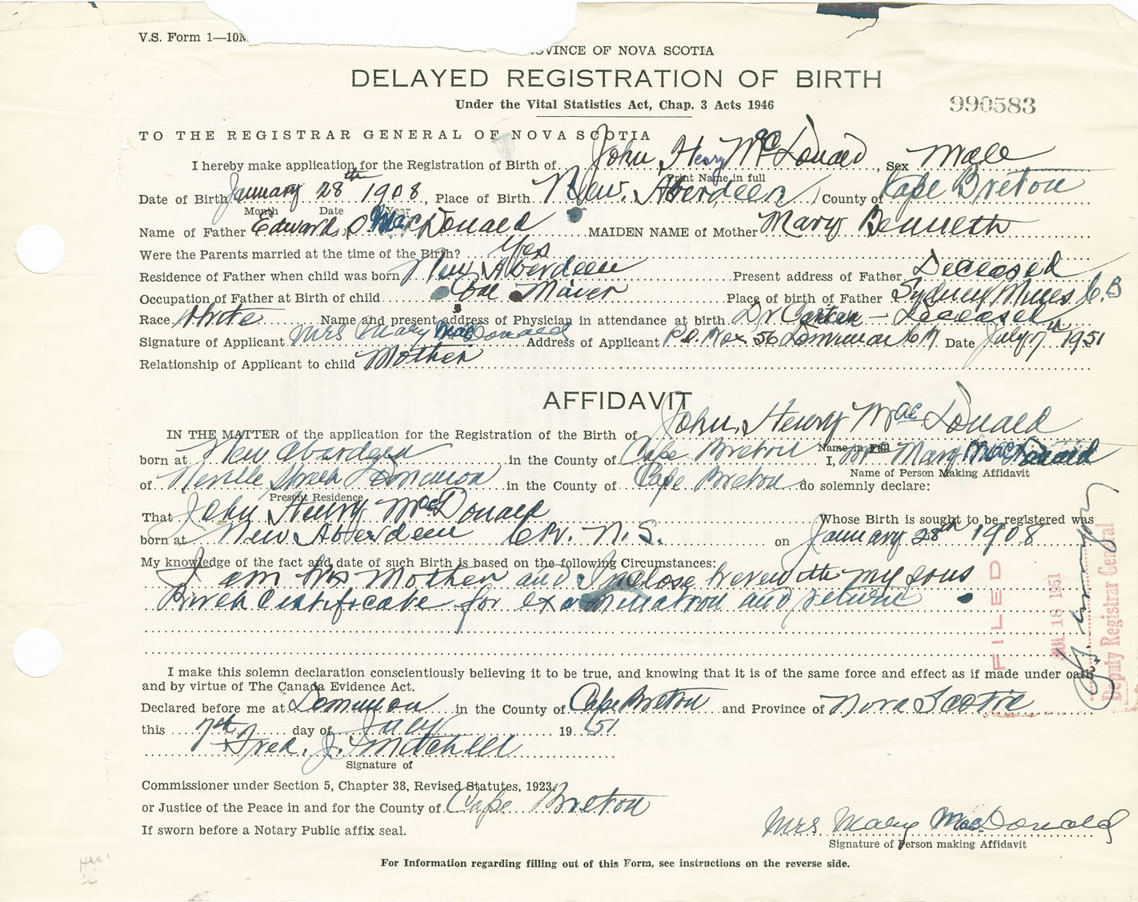 V.S. Form 1—10M
OVINCE OF NOVA SCOTIA
DELAYED REGISTRATION OF BIRTH
Under the Vital Statistics Act, Chap. 3 Acts 1946
990583
TO THE REGISTRAR GENERAL OF NOVA SCOTIA
I hereby make application for the Registration of Birth of John Henry MacDonald, Sex Male
Print Name in full
Date of Birth January 28th 1908, Place of Birth New Aberdeen, County of Cape Breton
Month Date Year
Name of Father Edward D MacDonald MAIDEN NAME of Mother Mary Benneth
Were the Parents married at the time of the Birth? Yes
Residence of Father when child was born New Aberdeen Present address of Father Deceased
Occupation of Father at Birth of child Coal Miner Place of birth of Father Sydney Mines C.B
Race White Name and present address of Physician in attendance at birth Dr – Deceased
Signature of Applicant Mrs Mary MacDonald Address of Applicant P.O. Box 56 Dominion Date July 7th 1951
Relationship of Applicant to child Mother
AFFIDAVIT
IN THE MATTER of the application for the Registration of the Birth of John Henry MacDonald
Name in Full
born at New Aberdeen in the County of Cape Breton I, Mrs Mary MacDonald
Name of Person Making Affidavit
of Neville Street Dominion in the County of Cape Breton do solemnly declare:
Present Residence
That John Henry MacDonald Whose Birth is sought to be registered was
born at New Aberdeen C.B. N.S. on January 28th 1908
My knowledge of the fact and date of such Birth is based on the following Circumstances:
I am his Mother and Inclose herewith my sons
Birth Certificate for examination and return
I make this solemn declaration conscientiously believing it to be true, and knowing that it is of the same force and effect as if made under oath
and by virtue of The Canada Evidence Act.
Declared before me at Dominion in the County of Cape Breton and Province of Nova Scotia
this 7th day of July 1951
Fred. J. Mitchell
Signature of
Commissioner under Section 5, Chapter 38, Revised Statutes, 1923,
or Justice of the Peace in and for the County of Cape Breton
If sworn before a Notary Public affix seal.
Mrs Mary MacDonald
Signature of Person making Affidavit
For Information regarding filling out of this Form, see instructions on the reverse side.
FILED
JUL 18 1951
Deputy Registrar General